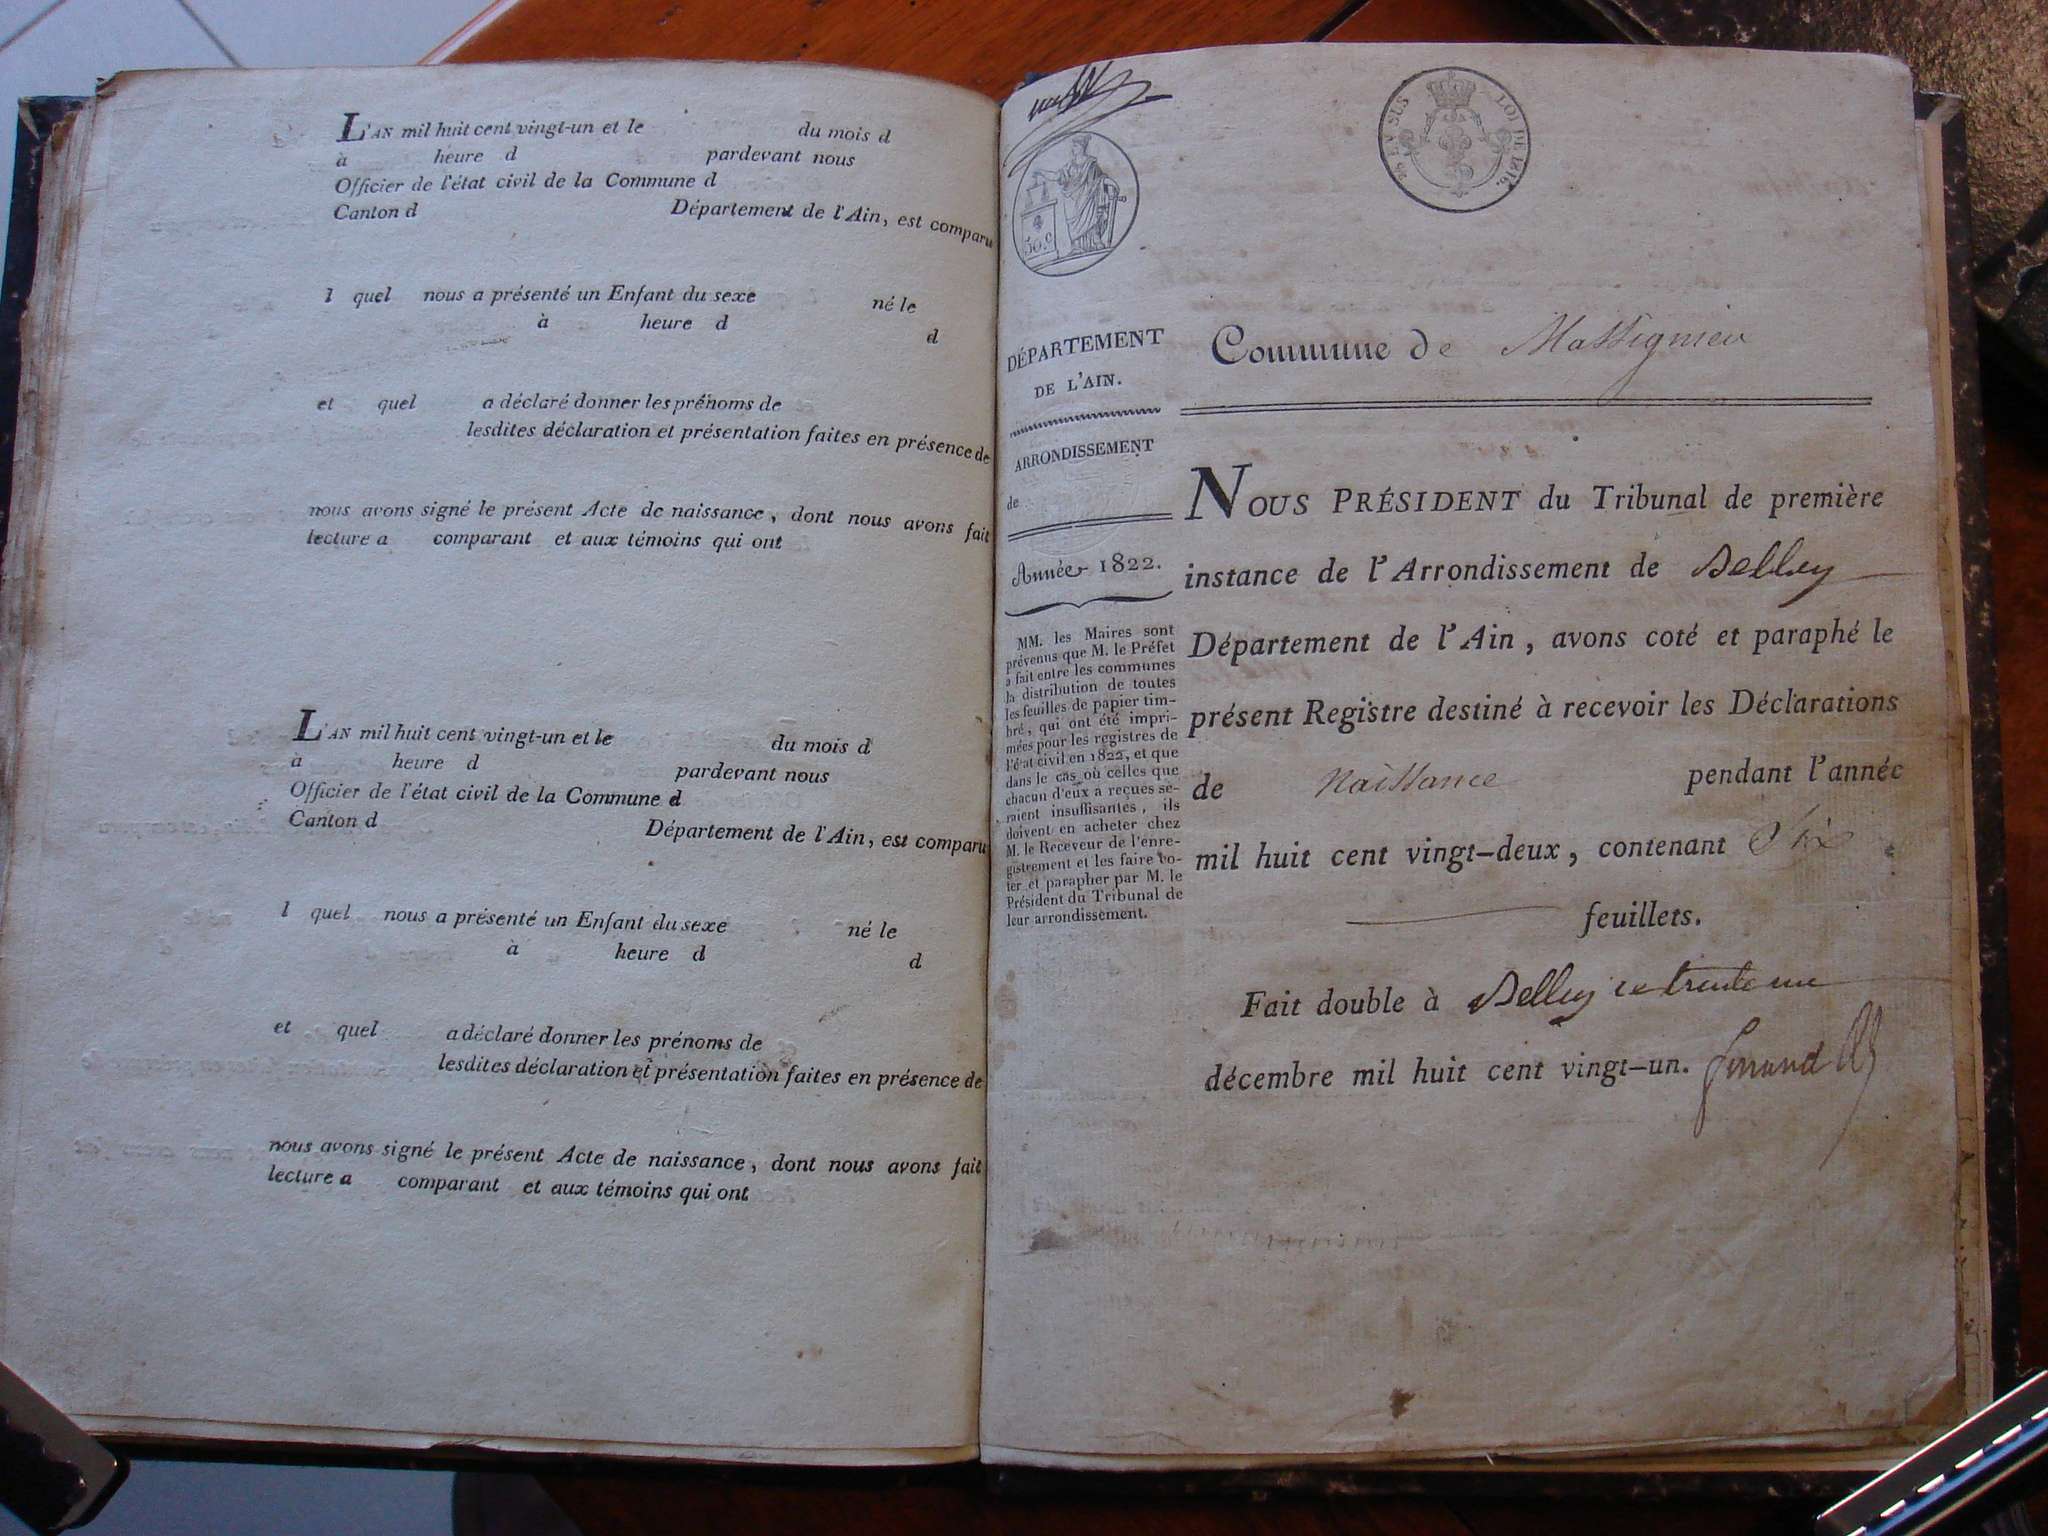 L'AN mil huit cent vingt-un et le du mois d
à heure d pardevant nous
Officier de l'état civil de la Commune d
Canton d Département de l'Ain, est comparu
l quel nous a présenté un Enfant du sexe né le
à heure d d
et quel a déclaré donner les prénoms de
lesdites déclaration et présentation faites en présence de
nous avons signé le présent Acte de naissance, dont nous avons fait
lecture a comparant et aux témoins qui ont
L'AN mil huit cent vingt-un et le du mois d
à heure d pardevant nous
Officier de l'état civil de la Commune d
Canton d Département de l'Ain, est comparu
l quel nous a présenté un Enfant du sexe né le
à heure d d
et quel a déclaré donner les prénoms de
lesdites déclaration et présentation faites en présence de
nous avons signé le présent Acte de naissance, dont nous avons fait
lecture a comparant et aux témoins qui ont
50.c
EN SUS LOI DE 1816.
DÉPARTEMENT
DE L'AIN.
ARRONDISSEMENT
de
Année 1822.
MM. les Maires sont
prévenus que M. le Préfet
a fait entre les communes
la distribution de toutes
les feuilles de papier tim-
bré, qui ont été impri-
mées pour les registres de
l'état civil en 1822, et que
dans le cas où celles que
chacun d'eux a reçues se-
raient insuffisantes, ils
doivent en acheter chez
M. le Receveur de l'enre-
gistrement et les faire co-
ter et parapher par M. le
Président du Tribunal de
leur arrondissement.
Commune de Massignieu
NOUS PRÉSIDENT du Tribunal de première
instance de l'Arrondissement de Belley
Département de l'Ain, avons coté et paraphé le
présent Registre destiné à recevoir les Déclarations
de Naissance pendant l'année
mil huit cent vingt-deux, contenant Six
feuillets.
Fait double à Belley le trente un
décembre mil huit cent vingt-un.